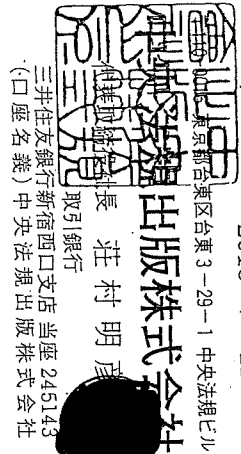 東京都台東区台東3-29-1 中央法規ビル
中央法規出版株式会社
代表取締役社長 荘村明彦
取引銀行
三井住友銀行新宿西口支店 当座245143
(口座名義)中央法規出版株式会社